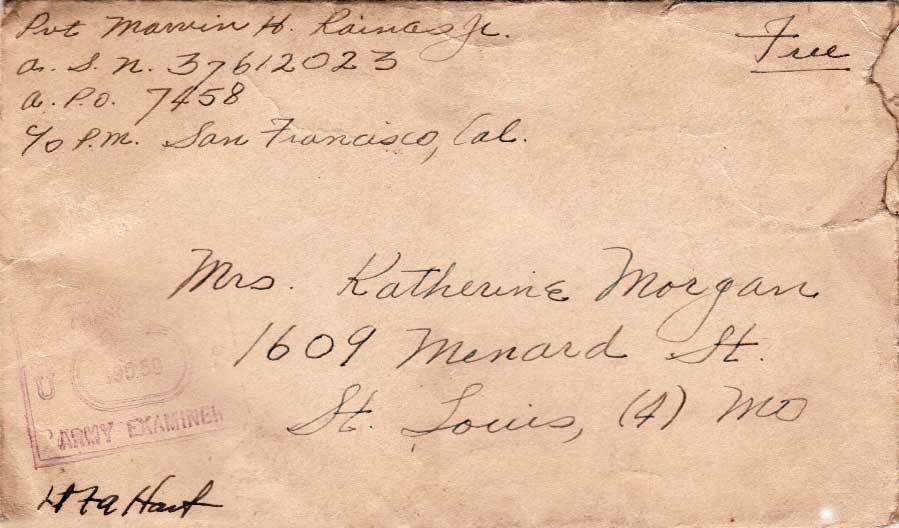 Pvt Marvin H. Raines Jr.
Free
a. S. N. 37612023
a. P.O. 7458
c/o P.M. San Francisco, Cal.
Mrs. Katherine Morgan
1609 Menard St.
St. Louis, (4) Mo
U
ARMY EXAMINER
Hart